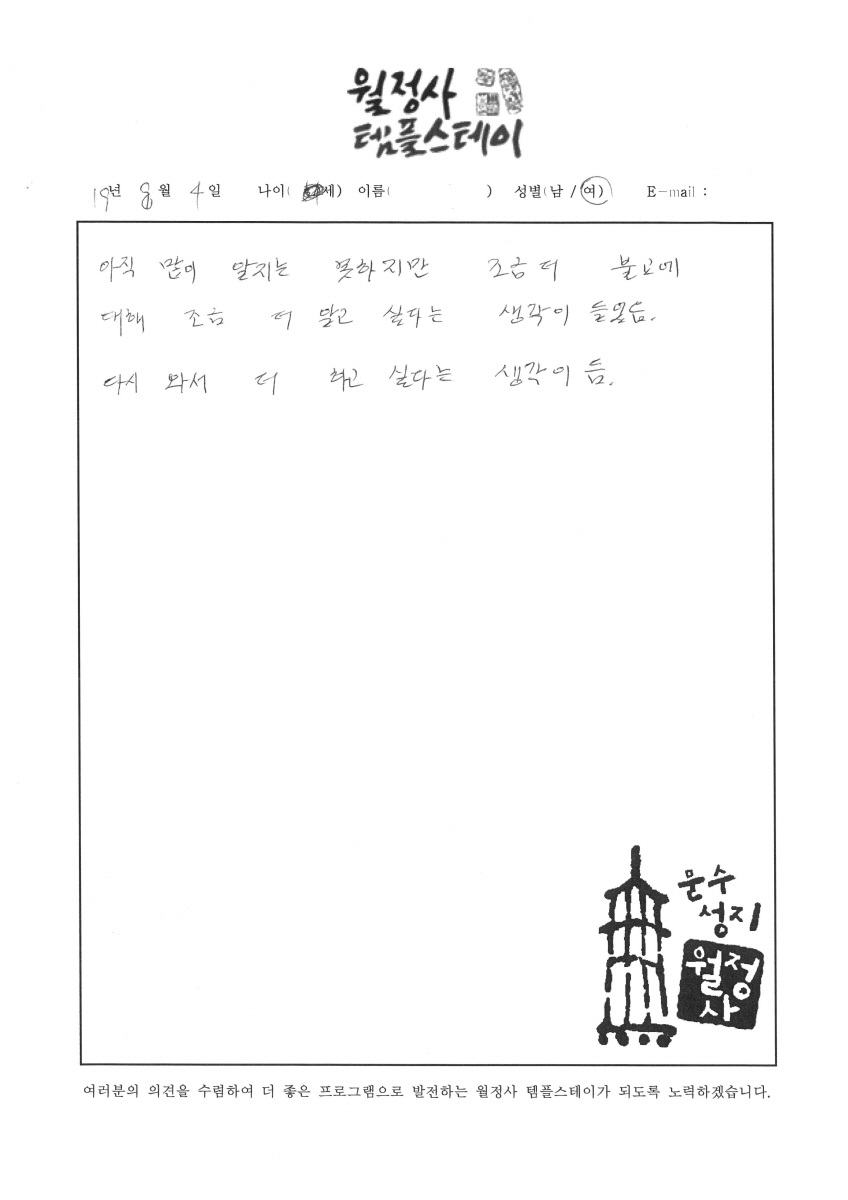 월정사
템플스테이
19년 8월 4일 나이( 세) 이름( ) 성별(남 / 여) E-mail :
아직 많이 알지는 못하지만 조금 더 불교에
대해 조금 더 알고 싶다는 생각이
다시 와서 더 하고 싶다는 생각이 듬.
문수
성지
월정
사
여러분의 의견을 수렴하여 더 좋은 프로그램으로 발전하는 월정사 템플스테이가 되도록 노력하겠습니다.